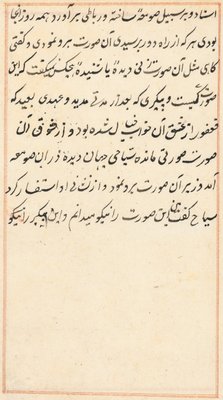 استاد و بر سبیل صومعه ساخته و رباطی برآورد همه روز آنجا
بودی هر که از راه دور رسیدی آن صورت برو نمودی و گفتی
کای مثل آن صورت در دیده یا شنیده هیچکس نگفت که این
صورت کیست و پیکری که بعد از مدتی مدید و عهدی بعید که
فغفور از عشق آن خواب شده بود و از شوق آن
صورت مانده سیاحی جهان دیده در آن صومعه
آمد وزیر آن صورت برو نمود و از نشانی او استفسار کرد
سیاح گفت من این صورت را نیکو میدانم و این پیکر را نیکو